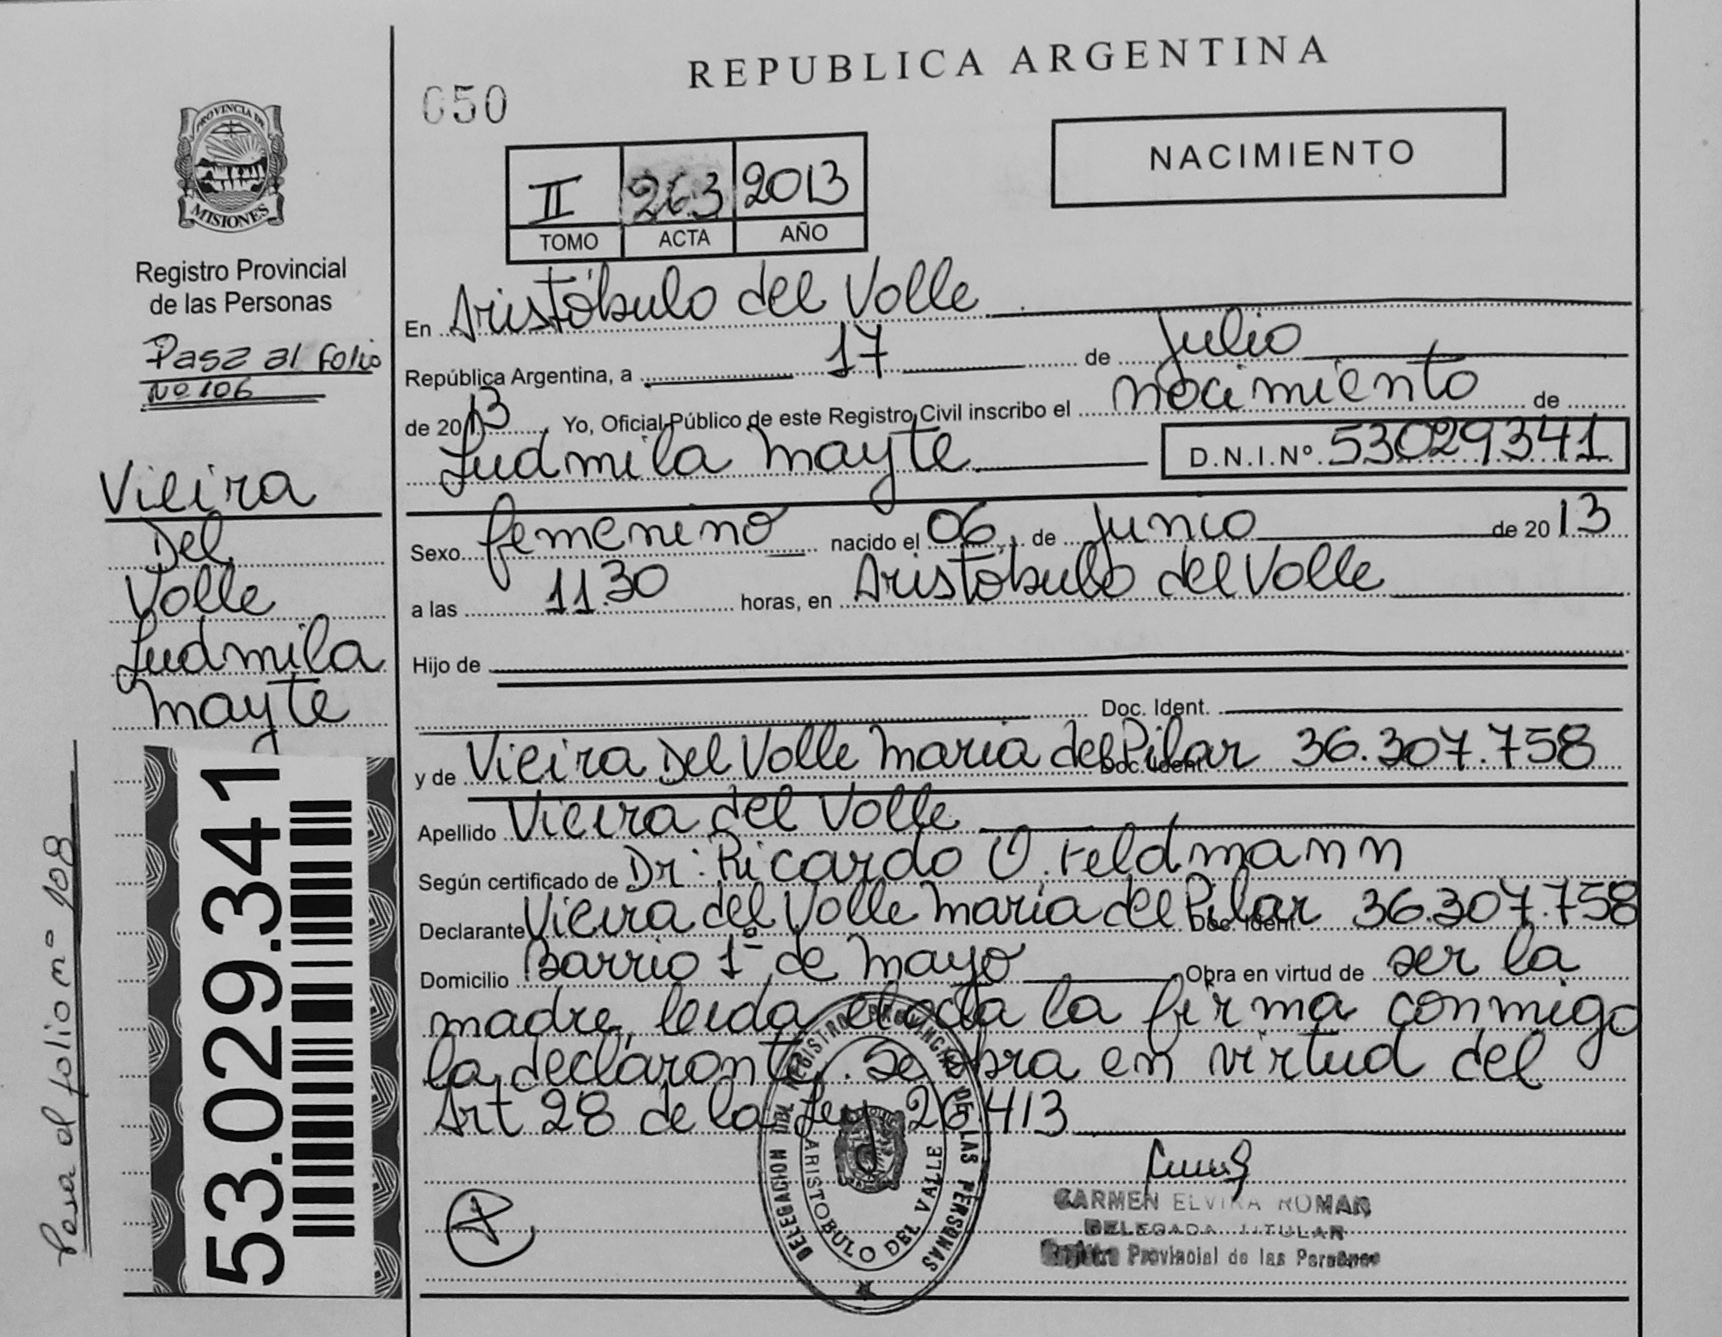 REPUBLICA ARGENTINA
050
NACIMIENTO
PROVINCIA DE
MISIONES
II 263 2013
TOMO ACTA AÑO
Registro Provincial
de las Personas
Pasa al folio
Nº 106
En Aristóbulo del Valle
República Argentina, a 17 de Julio
de 2013 Yo, Oficial Público de este Registro Civil inscribo el nacimiento de
Ludmila Mayte D.N.I.Nº 53029341
Vieira
Del
Valle
Ludmila
Mayte
Sexo femenino nacido el 06 de Junio de 2013
a las 11.30 horas, en Aristóbulo del Valle
Hijo de
Doc. Ident.
y de Vieira Del Valle Maria del Pilar Doc. Ident. 36.307.758
Apellido Vieira del Valle
Según certificado de Dr: Ricardo O. Feldmann
Declarante Vieira del Valle Maria del Pilar Doc. Ident. 36.307.758
Domicilio Barrio 1º de Mayo Obra en virtud de ser la
madre, leida el acta la firma conmigo
la declarante. Se obra en virtud del
Art 28 de la Ley 26413
53.029.341
Pasa al folio nº 108
DELEGACION DEL REGISTRO PROVINCIAL DE LAS PERSONAS
ARISTOBULO DEL VALLE
CARMEN ELVIRA ROMAN
DELEGADA TITULAR
Registro Provincial de las Personas